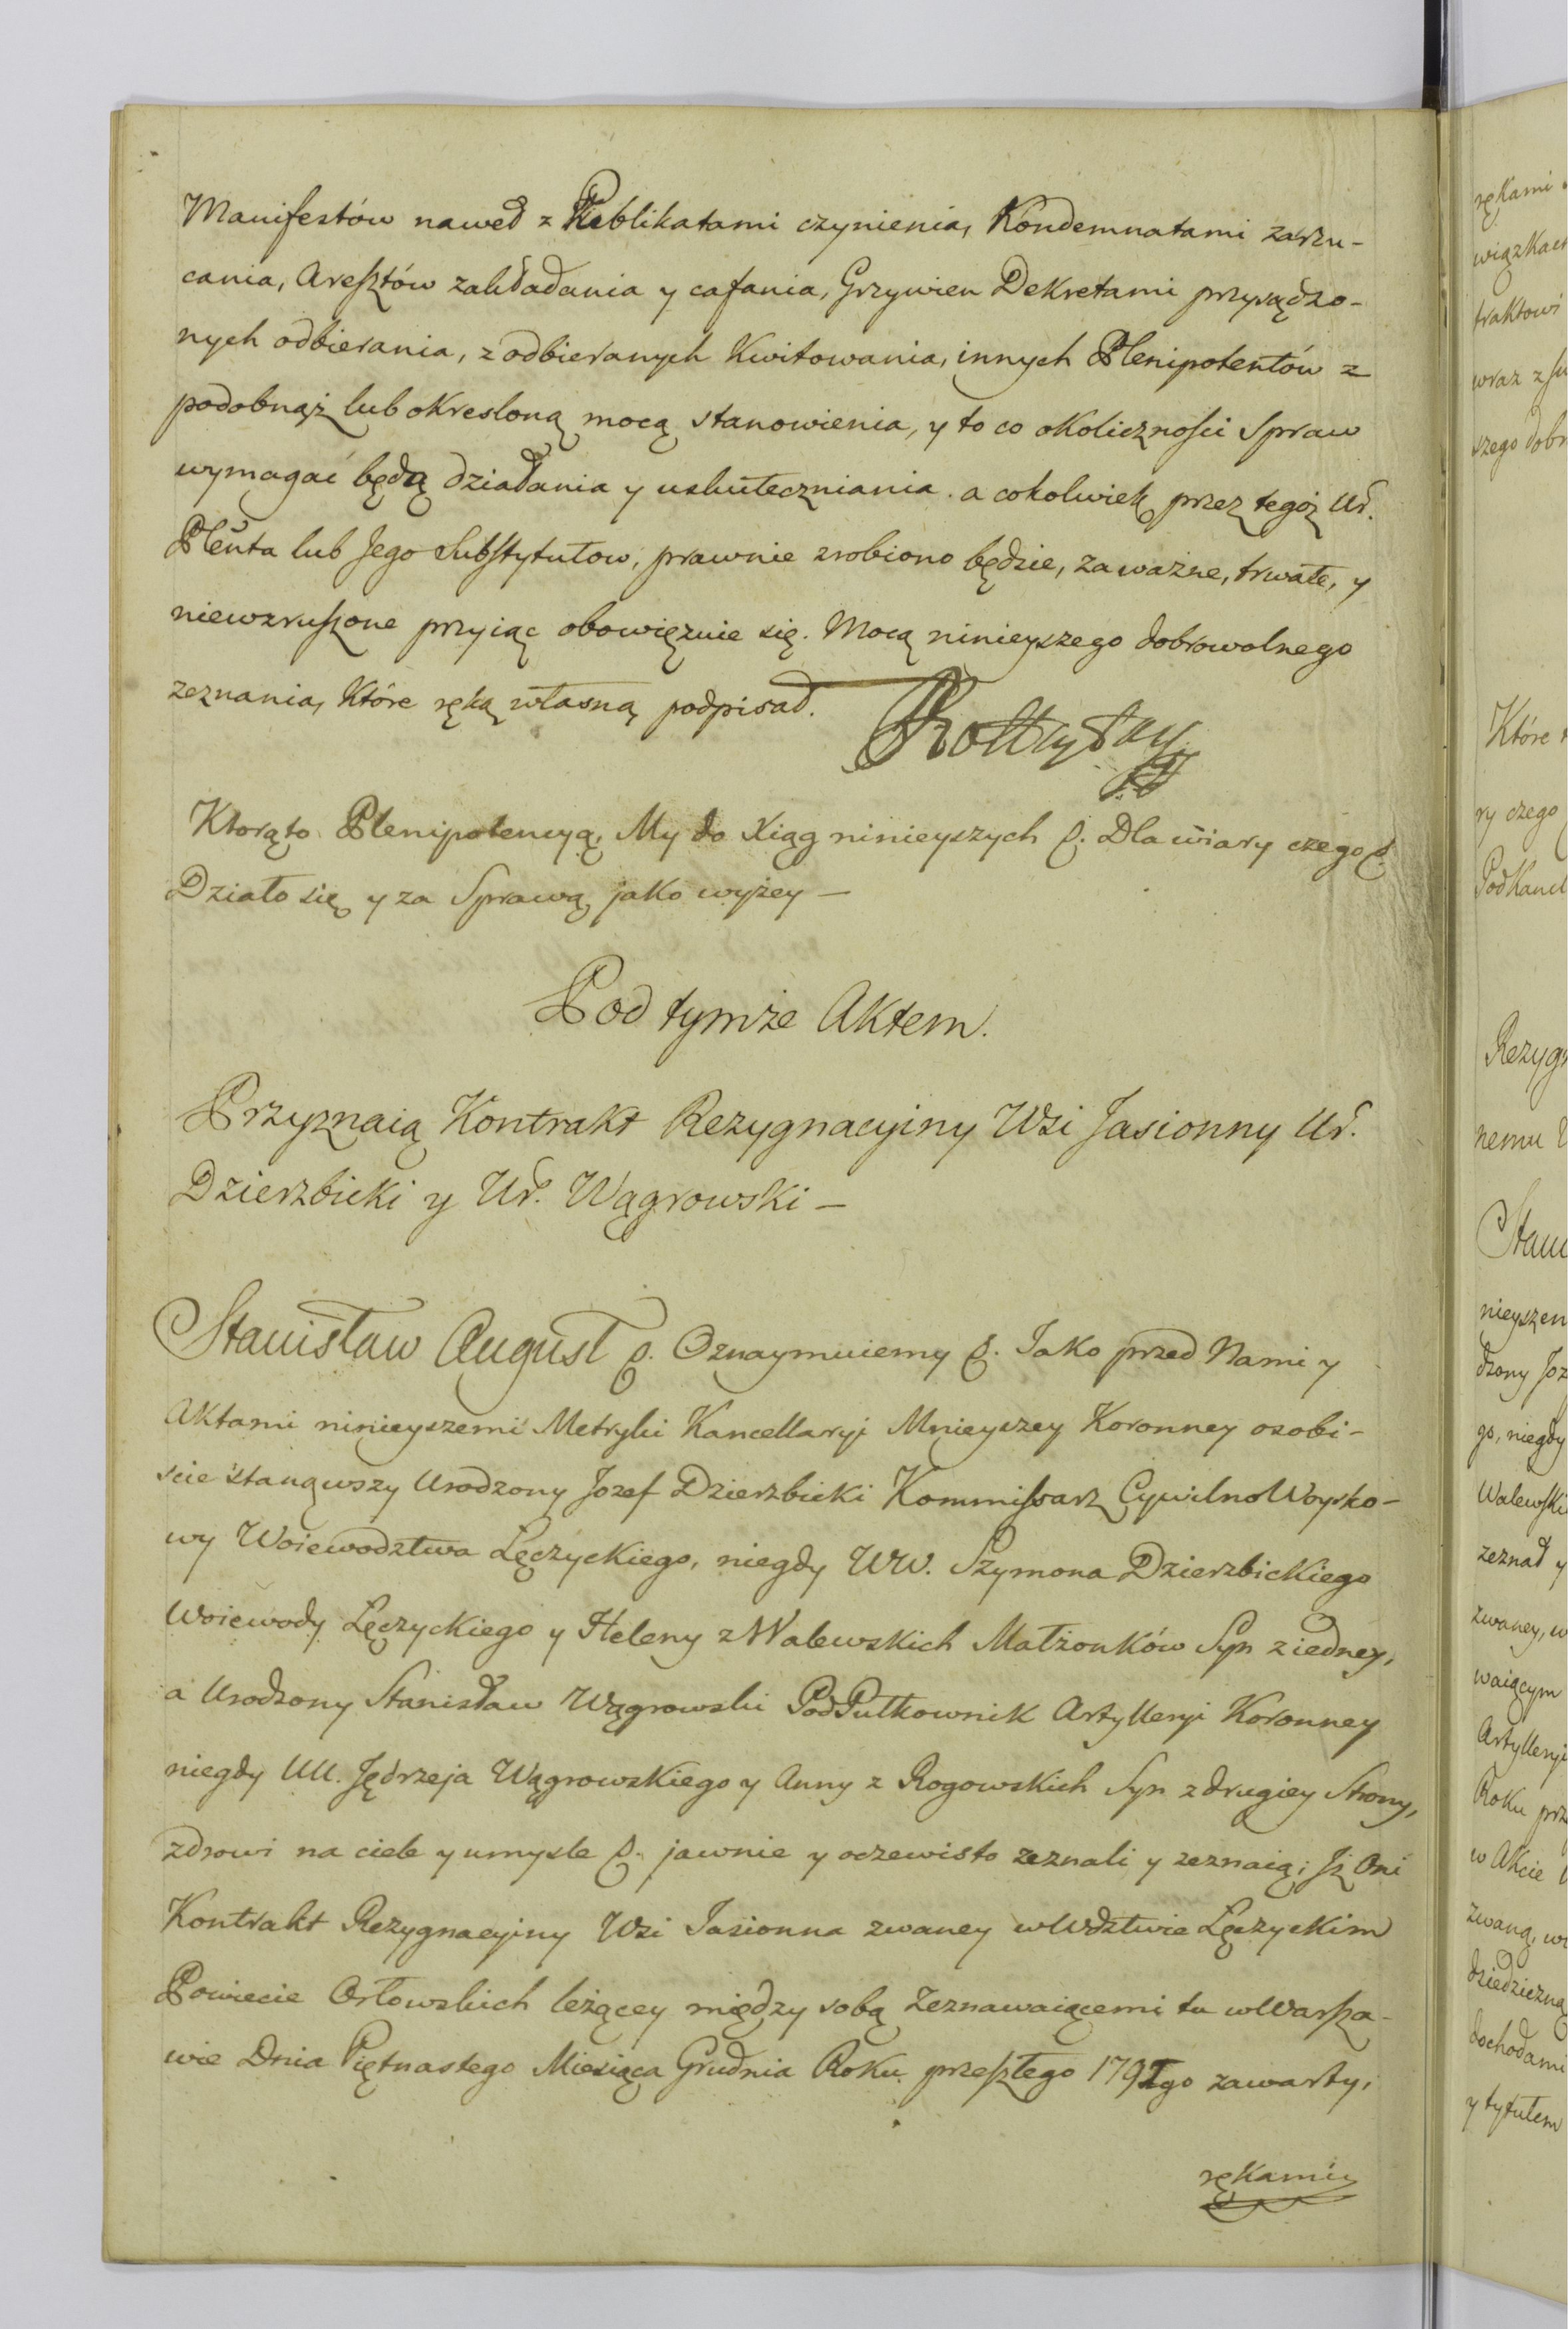 Manifestów naweł z Reblikatami czynienia, Kondemnatami zarzu-
cania, Aresztów zakładania y cafania, Grzywien Dekretami przysądzo-
nych odbierania, z odbieranych Kwitowania, innych Plenipotentów z
podobnąż lub okresloną mocą stanowienia, y to co okoliczności Spraw
wymagać będą działania y uskuteczniania. a cokolwiek przez tegoż Ur.
Plenta lub Jego Substytutow, prawnie zrobiono będzie, za ważne, trwałe, y
niewzruszone przyiąc obowięznie się. Mocą ninieyszego dobrowolnego
zeznania, Które ręką własną podpisał.
Ktorąto Plenipotencyą, My do Xiąg ninieyszych p. Dla wiary czego p
Działo się y za Sprawą jako wyżey –
Pod tymże Aktem.
Przyznaią Kontrakt Rezygnacyiny Wsi Jasionny Ur.
Dzierzbicki y Ur. Wągrowski –
Stanisław August p. Oznaymuiemy p. Iako przed Nami y
Aktami ninieyszemi Metryki Kancellaryi Mnieyszey Koronney osobi-
scie stanąwszy Urodzony Jozef Dzierzbicki Kommissarz CywilnoWoysko-
wy Woiewodztwa Łęczyckiego, niegdy WW. Szymona Dzierzbickiego
Woiewody Łęczyckiego y Heleny z Walewskich Małżonków Syn z iedney,
a Urodzony Stanisław Wągrowski PodPułkownik Artylleryi Koronney
niegdy UU. Jędrzeja Wągrowskiego y Anny z Rogowskich Syn z drugiey Strony,
zdrowi na ciele y umysle p. jawnie y oczewisto zeznali y zeznaią; Iż Oni
Kontrakt Rezygnacyiny Wsi Iasionna zwaney w Wdztwie Łęczyckim
Powiecie Orłowskich leżącey między sobą Zeznawaiącemi tu w Warsza-
wie Dnia Piętnastego Miesiąca Grudnia Roku przeszłego 1791go zawarty,
rękami
rękami
wiązkach
traktowi
wraz z
szego dobr
Które
ry czego
PodKancl
Rezyg
nemu
Stani
nieyszem
dzony Joz
go, niegdy
Walewski
zeznał y
zwaney, w
waiącym
Artylleryi
Roku prz
w Akcie
zwaną, w
dziedziczną
dochodami
y tytułem